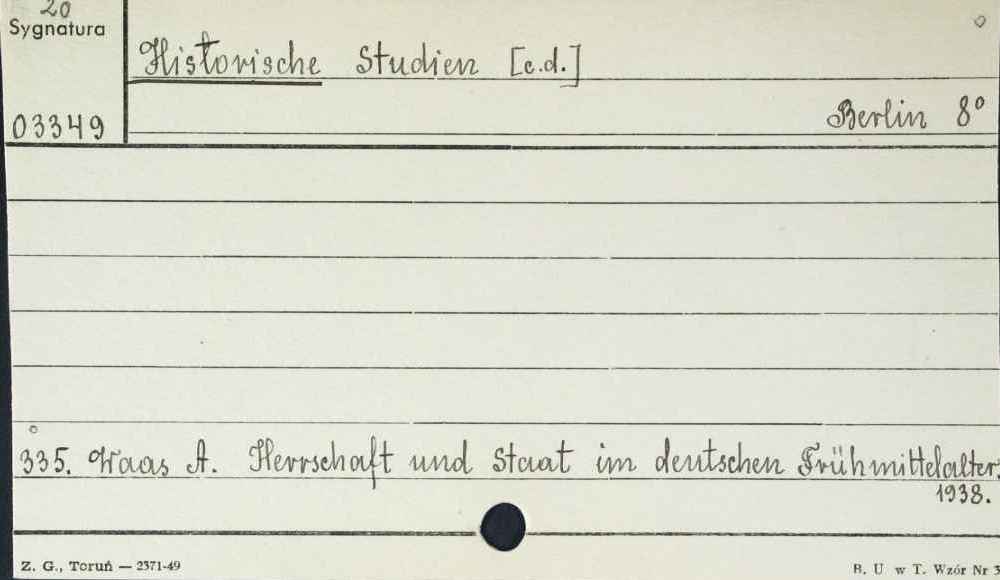 20
Sygnatura
Historische Studien [c.d.]
Berlin 8°
03349
335. Waas A. Herrschaft und Staat im deutschen Frühmittelalter.
1938.
Z. G., Toruń — 2371-49
B. U w T. Wzór Nr 3